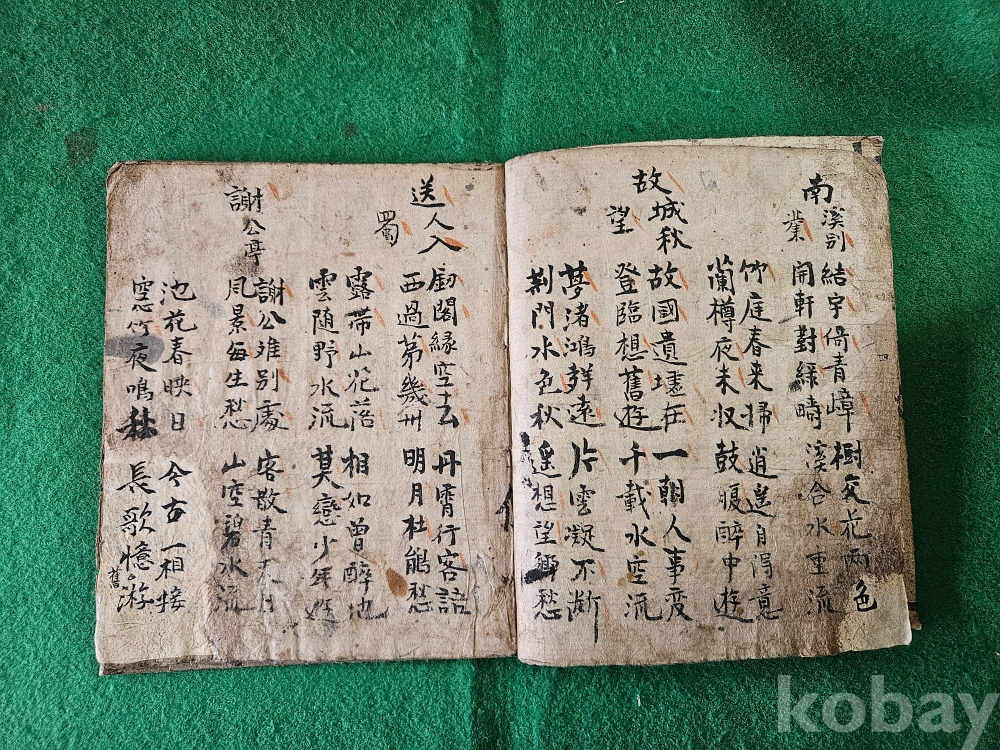 南溪别業
結宇倚青嶂
開軒對綠疇
樹交花兩色
溪合水重流
竹庭春来掃
蘭樽夜未収
逍遙自得意
鼓腹醉中遊
故城秋望
故國遺墟在
登臨想舊遊
一朝人事変
千載水空流
夢渚鴻群遠
荆門水色秋
片雲凝不断
遙想望鄉愁
送人入蜀
劒閣緣空去
西過苐幾州
丹霄行客語
明月杜鵑愁
露帶山花落
雲随野水流
相如曾醉地
莫戀少年遊
謝公亭
謝公难别處
風景每生愁
客散青天日
山空碧水流
池花春映日
窓竹夜鳴秋
今古一相接
長歌憶舊游
kobay